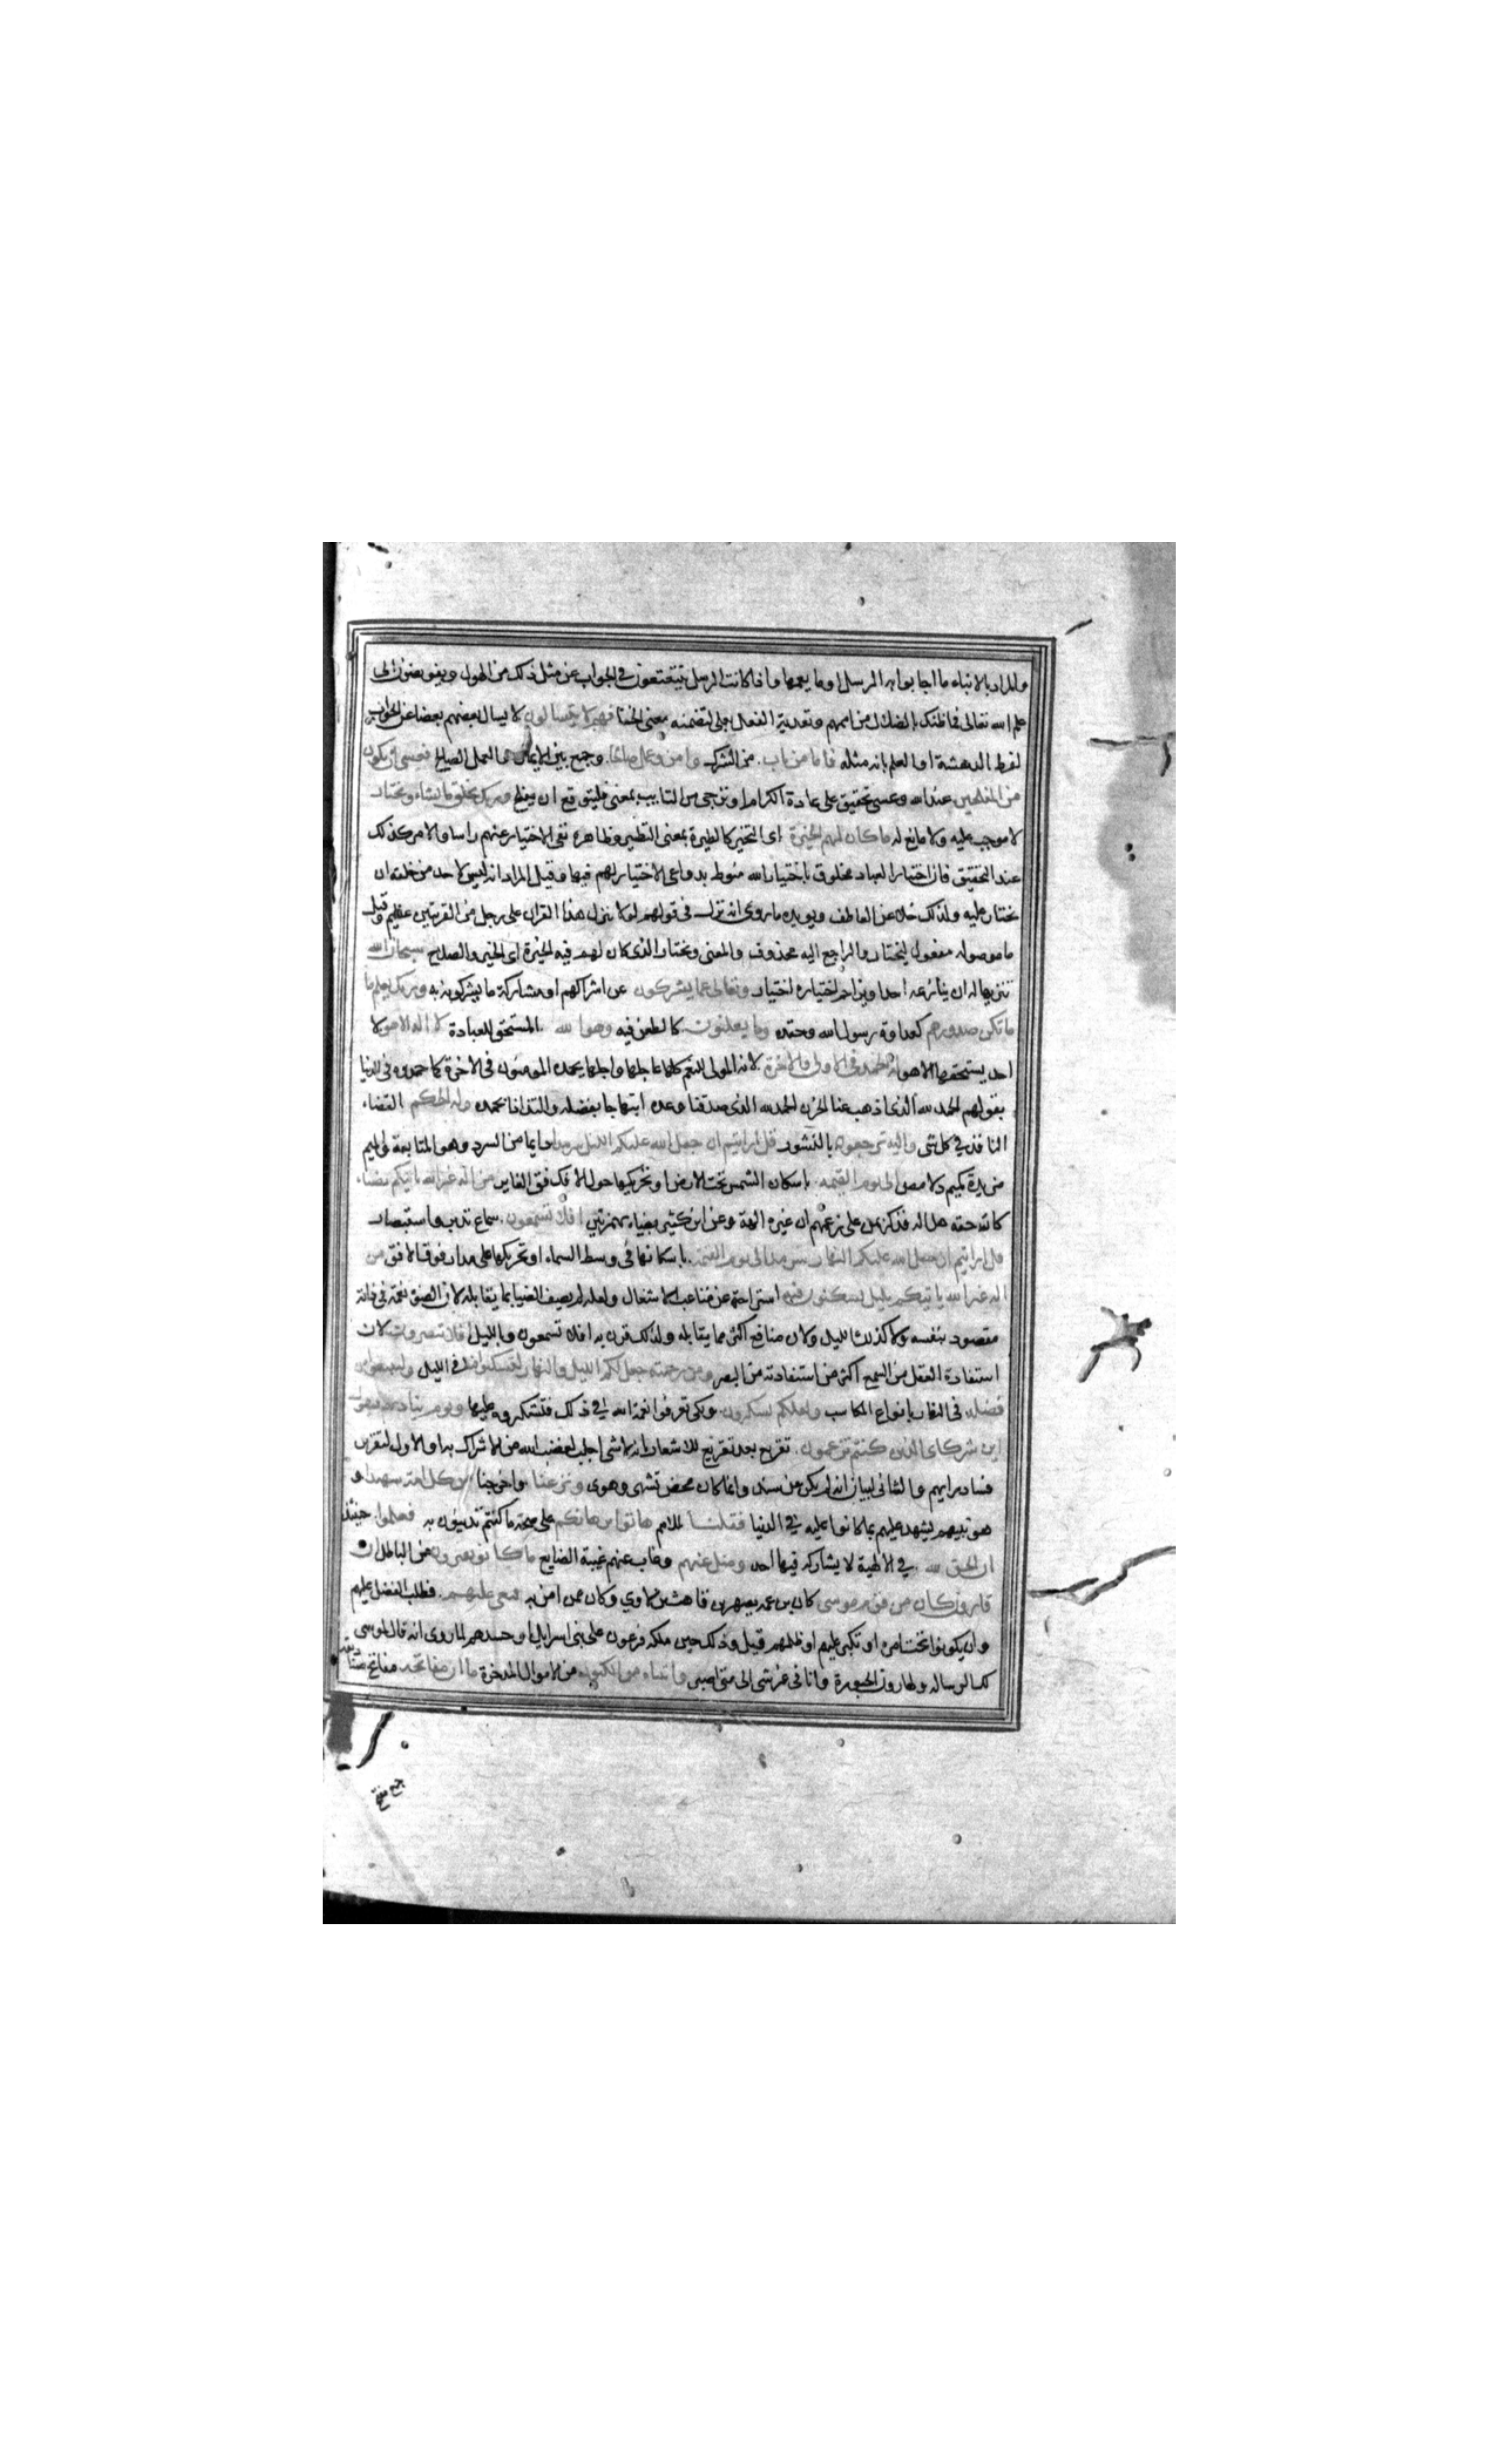 والمراد بالانباء ما اجابوا به الرسل او ما يعمها واذا كانت الرسل يتتعتعون في الجواب عن مثل ذلك من الهول ويفوضون الى
علم الله تعالى فما ظنك بالضلال من اممهم وتعدية الفعل بعلى لتضمنه معنى الخفا فهم لا يتسالون لا يسال بعضهم بعضا عن الجواب
لفرط الدهشة او العلم بانه مثله فاما من تاب من الشرك وامن وعمل صالحا وجمع بين الايمان والعمل الصالح فعسى ان يكون
من المفلحين عند الله وعسى تحقيق على عادة الكرام او ترجى من التايب بمعنى فليتوقع ان يفلح وربك يخلق ما يشاء ويختار
لا موجب عليه ولا مانع له ما كان لهم الخيرة اى التخير كالطيرة بمعنى التطير وظاهره نفى الاختيار عنهم راسا والامر كذلك
عند التحقيق فان اختيار العباد مخلوق باختيار الله منوط بدواعى لا اختيار لهم فيها وقيل المراد انه ليس لاحد من خلقه ان
يختار عليه ولذلك خلا عن العاطف ويويده ما روى انه نزل فى قولهم لولا نزل هذا القران على رجل من القريتين عظيم وقيل
ما موصولة مفعول ليختار والراجع اليه محذوف والمعنى ويختار الذى كان لهم فيه الخيرة اى الخير والصلاح سبحان الله
تنزيها له ان ينازعه احد او يزاحم اختياره اختيار وتعالى عما يشركون عن اشراكهم او مشاركة ما يشركونه به وربك يعلم ما
ما تكن صدورهم كعداوة رسول الله وحقده وما يعلنون كالطعن فيه وهو الله المستحق للعبادة لا اله الا هو لا
احد يستحقها الا هو له الحمد فى الاولى والاخرة لانه المولى للنعم كلها عاجلها واجلها يحمده المومنون فى الاخرة كما حمدوه فى الدنيا
بقولهم الحمد لله الذى اذهب عنا الحزن الحمد لله الذى صدقنا وعده ابتهاجا بفضله والتذاذا بحمده وله الحكم القضاء
النافذ في كل شى واليه ترجعون بالنشور قل ارايتم ان جعل الله عليكم الليل سرمدا دايما من السرد وهو المتابعة والميم
مزيدة كميم دلامص الى يوم القيمة باسكان الشمس تحت الارض او تحريكها حول الافك فوق الغاير من اله غير الله ياتيكم بضياء
كان حقه هل اله فذكر بمن على زعمهم ان غيره الهة وعن ابن كثير بضياء بهمزتين افلا تسمعون سماع تدبر واستبصار
قل ارايتم ان جعل الله عليكم النهار سرمدا الى يوم القيمة باسكانها فى وسط السماء او تحريكها على مدار فوق الافق من
اله غير الله ياتيكم بليل تسكنون فيه استراحة عن متاعب الاشغال ولعله لم يصف الضيا بما يقابله لان الضؤ نعمة فى ذاته
مقصود بنفسه ولا كذلك الليل ولان منافع اكثر مما يقابله ولذلك قرن به افلا تسمعون وبالليل افلا تبصرون لان
استفادة العقل من السمع اكثر من استفادته من البصر ومن رحمته جعل لكم الليل والنهار لتسكنوا فيه في الليل ولتبتغوا من
فضله فى النهار بانواع المكاسب ولعلكم تشكرون ولكى تعرفوا نعمة الله في ذلك فتشكروه عليها ويوم يناديهم فيقول
اين شركاى الذين كنتم تزعمون تقريع بعد تقريع للاشعار بانه لا شى اجلب لغضب الله من الاشراك به او الاول لتقرير
فساد رايهم والثانى لبيان انه لم يكن عن سند وانما كان محض تشهى وهوى ونزعنا واخرجنا من كل امة شهيدا و
هو نبيهم يشهد عليهم بما كانوا عليه في الدنيا فقلنا للامم هاتوا برهانكم على صحة ما كنتم تدينون به فعلموا حينئذ
ان الحق لله في الالهية لا يشاركه فيها احد وضل عنهم وغاب عنهم غيبة الضايع ما كانوا يفترون من الباطل ان
قارون كان من قوم موسى كان بن عمه يصهر بن قاهث بن لاوي وكان ممن امن به فبغى عليهم فطلب الفضل عليهم
وان يكونوا تحت امره او تكبر عليهم او ظلمهم قيل وذلك حين ملكه فرعون على بنى اسرايل او حسدهم لما روى انه قال لموسى
لك الرسالة ولهارون الحبورة وانا فى غير شى الى متى اصبر واتيناه من الكنوز من الاموال المدخرة ما ان مفاتحه مفاتح صناديقه
جمع مفتح